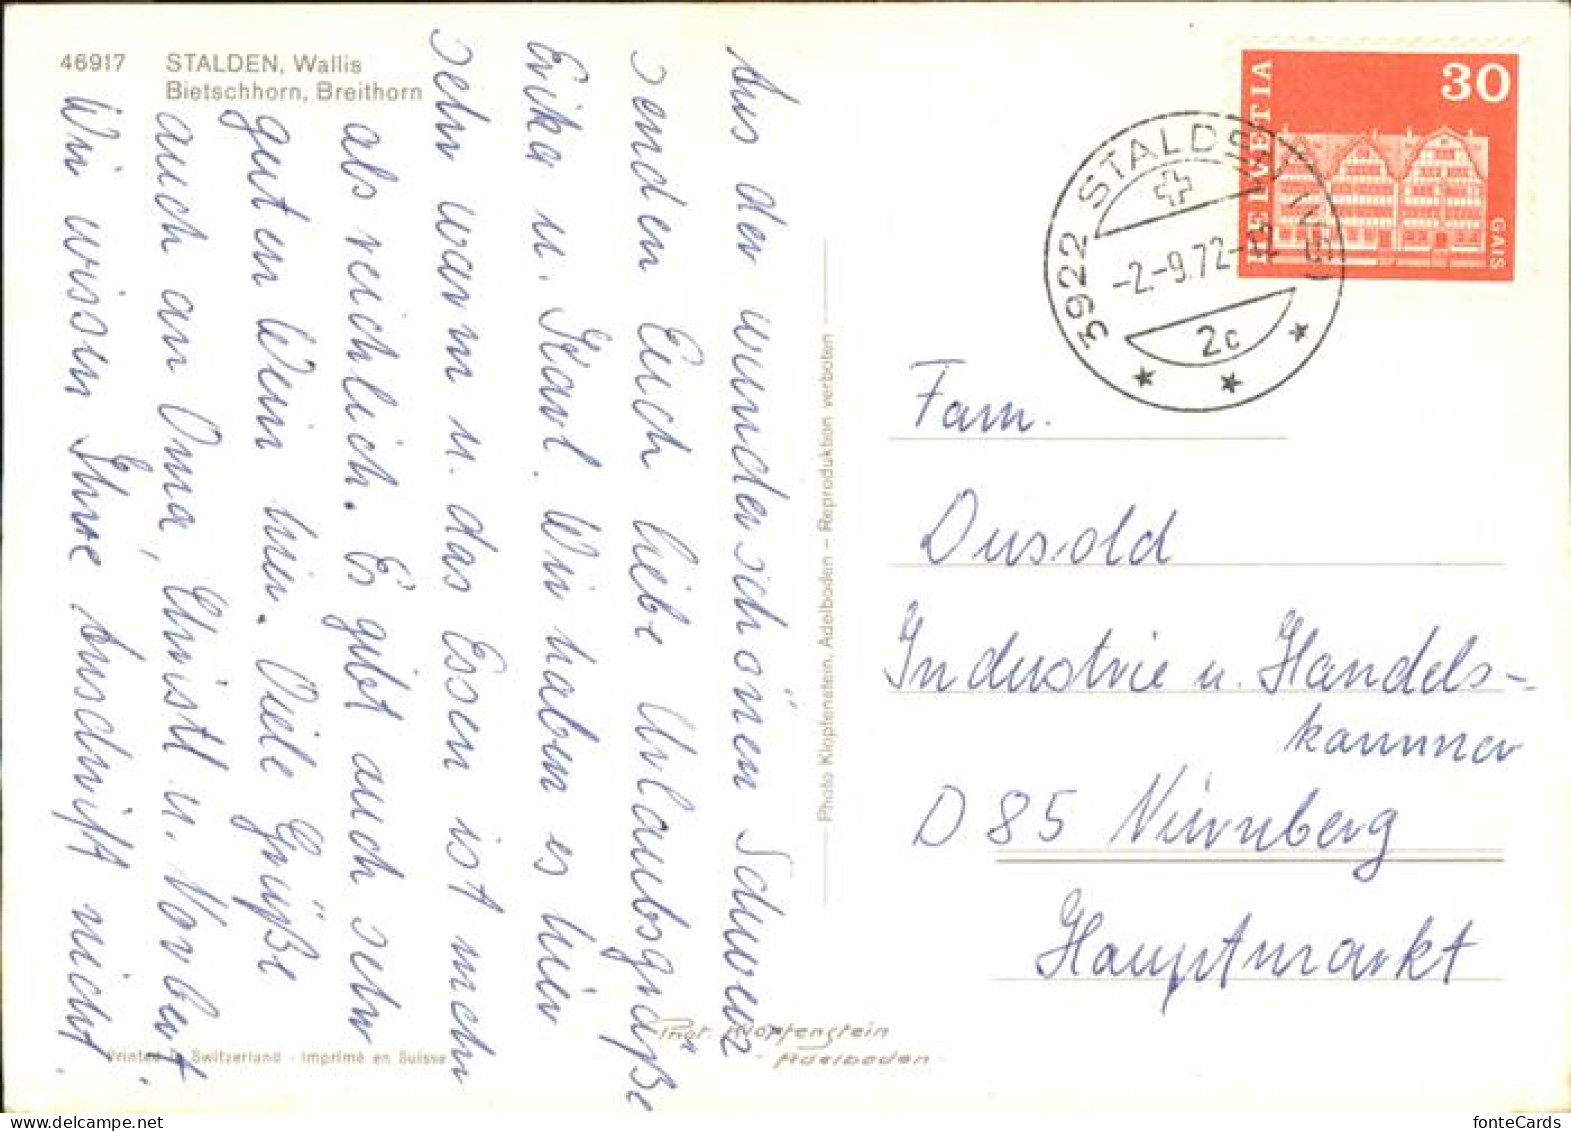 46917 STALDEN, Wallis
Bietschhorn, Breithorn
Aus der wunderschönen Schweiz
senden Euch liebe Urlaubsgrüße
Erika u. Karl. Wir haben es hier
sehr warm u. das Essen ist mehr
als reichlich. Es gibt auch sehr
guten Wein hier. Viele Grüße
auch an Oma, Christl u. Norbert.
Wir wissen Ihre Anschrift nicht.
Photo Klopfenstein, Adelboden – Reproduktion verboten
Printed in Switzerland - Imprimé en Suisse
Phot. Klopfenstein
- Adelboden -
HELVETIA
30
GAIS
3922 STALDEN (VS)
-2.-9.72-12
2c
Fam.
Dusold
Industrie u. Handels-
kammer
D 85 Nürnberg
Hauptmarkt
fonteCards